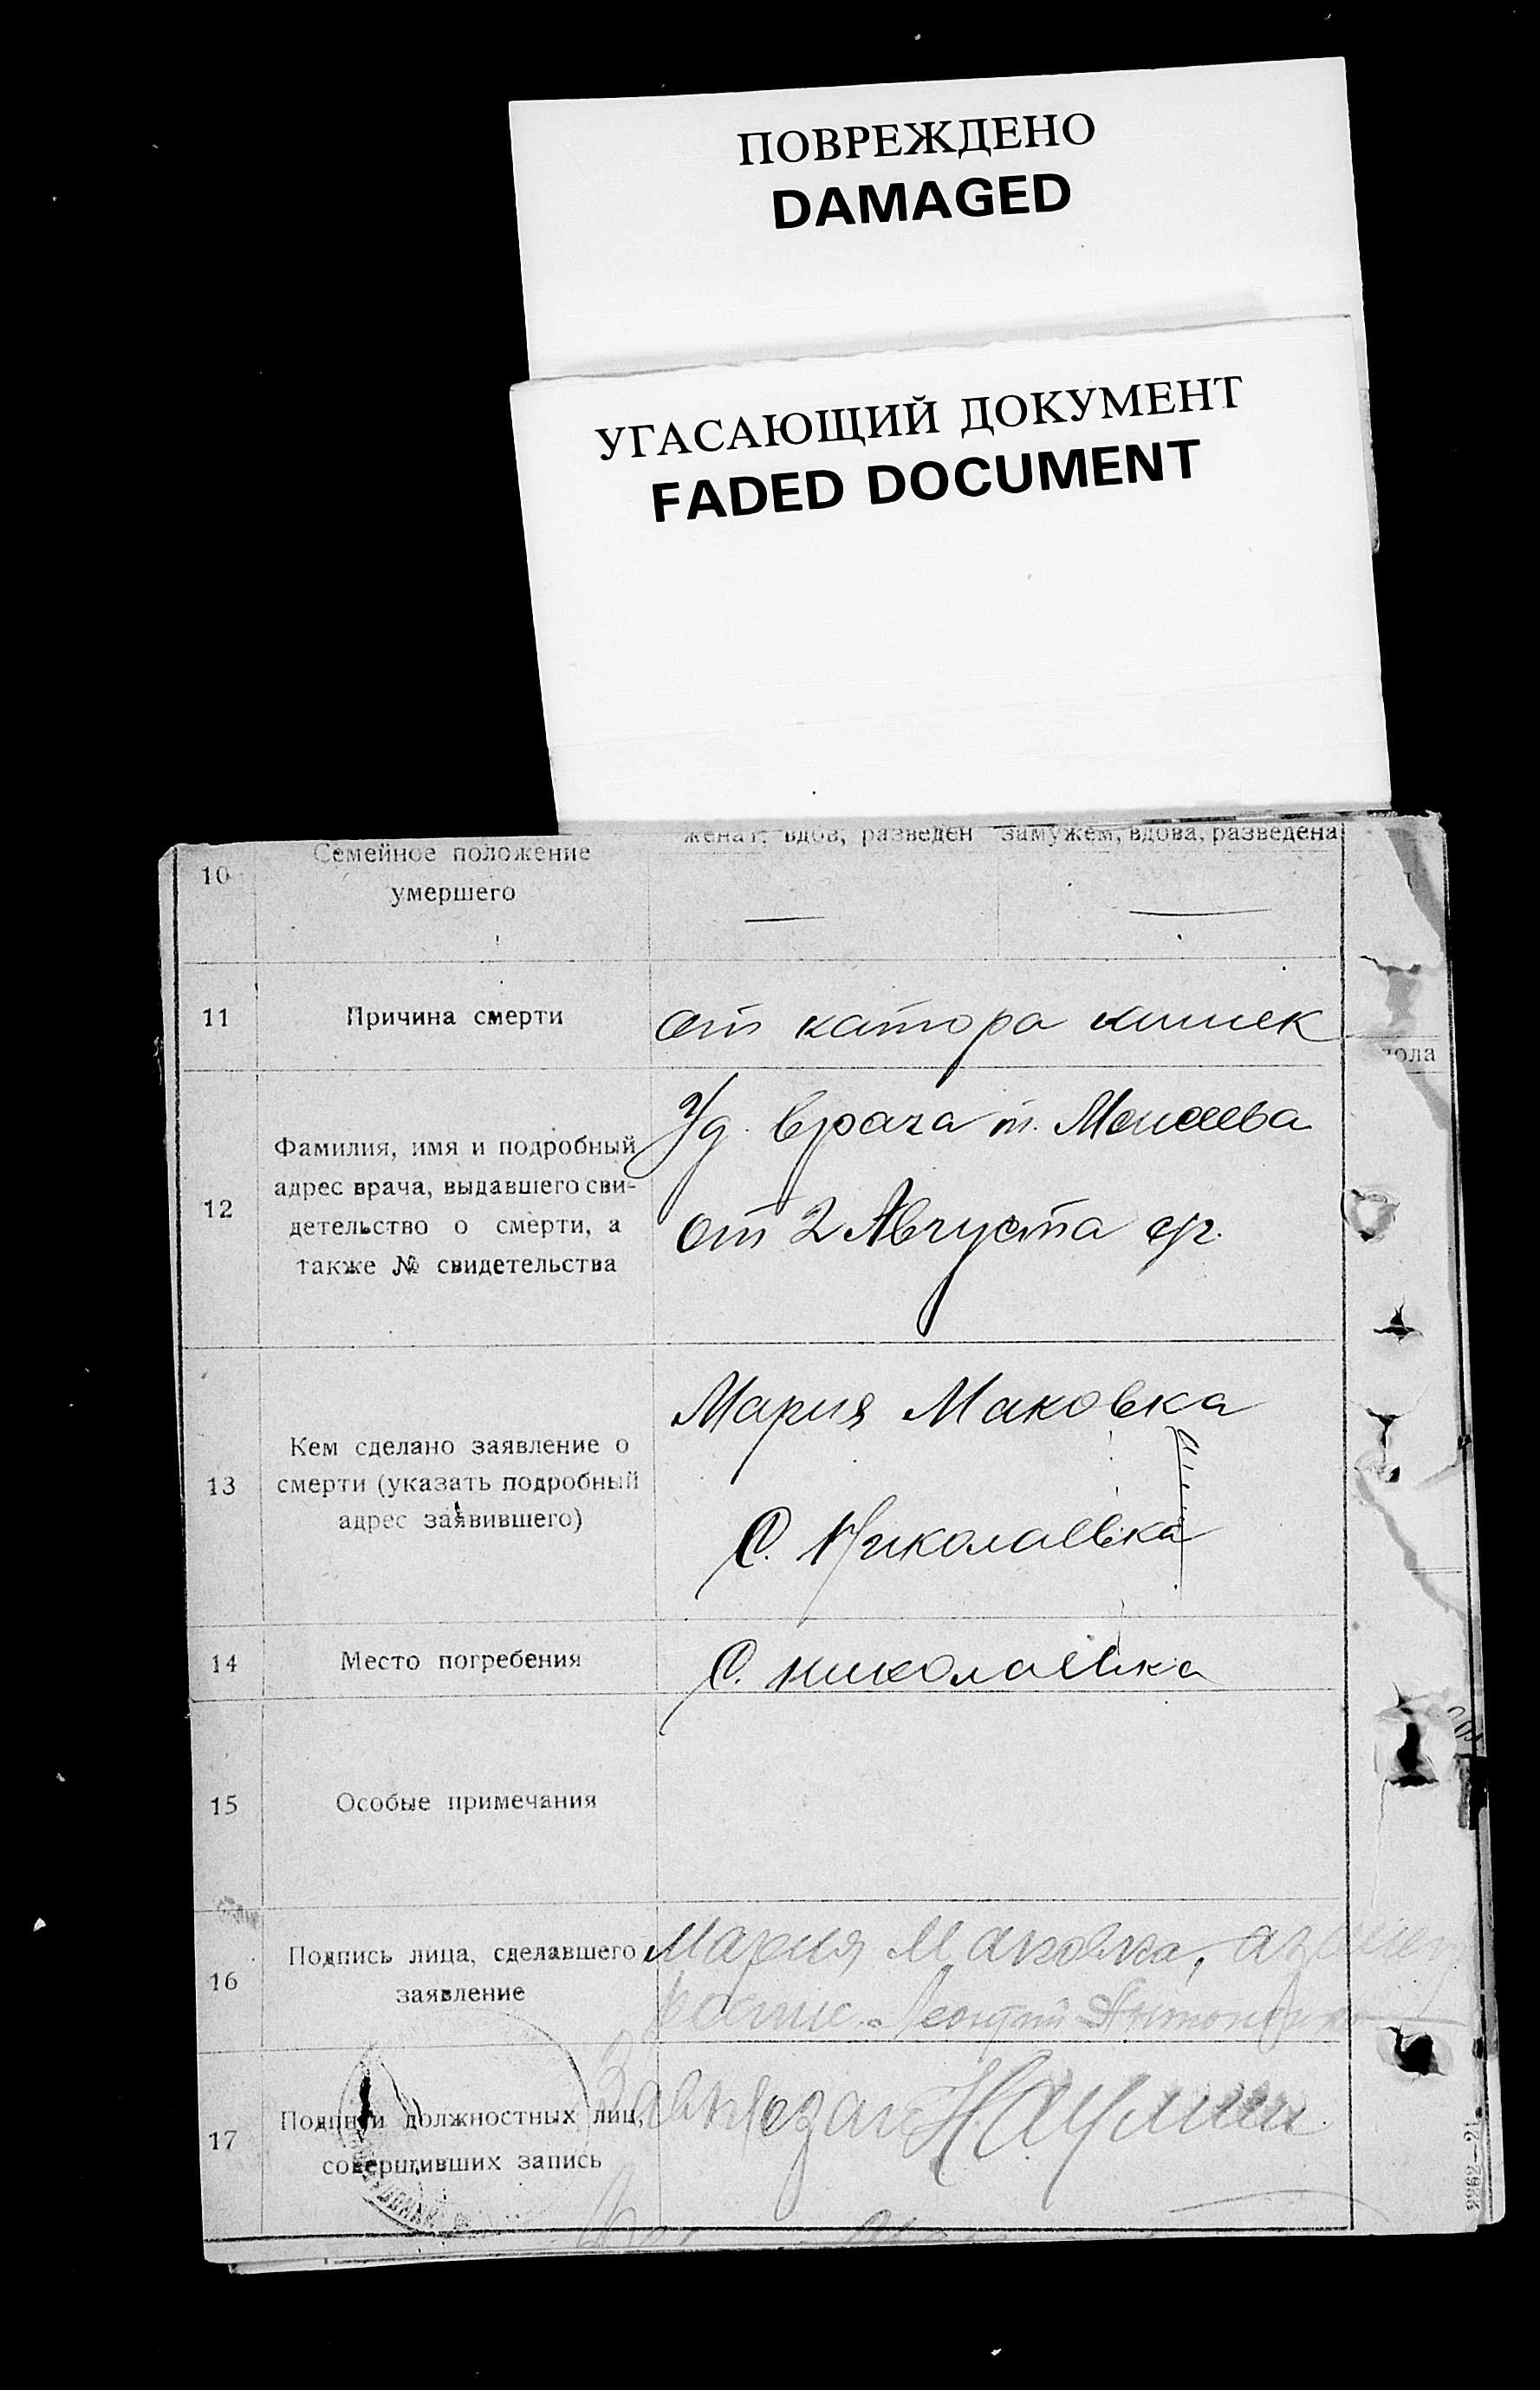 ПОВРЕЖДЕНО
DAMAGED
УГАСАЮЩИЙ ДОКУМЕНТ
FADED DOCUMENT
женат, вдов, разведен замужем, вдова, разведена
10 Семейное положение
умершего
11 Причина смерти от катора кишек
пола
Уд. врача т. Моисеева
12 Фамилия, имя и подробный
адрес врача, выдавшего сви-
детельство о смерти, а
также № свидетельства
от 2 Августа сг.
Мария Маковка
13 Кем сделано заявление о
смерти (указать подробный
адрес заявившего)
С. Николаевка
14 Место погребения С. николаевка
15 Особые примечания
16 Подпись лица, сделавшего
заявление
Мария Маковка,
17 Подписи должностных лиц,
совершивших запись
2262—21